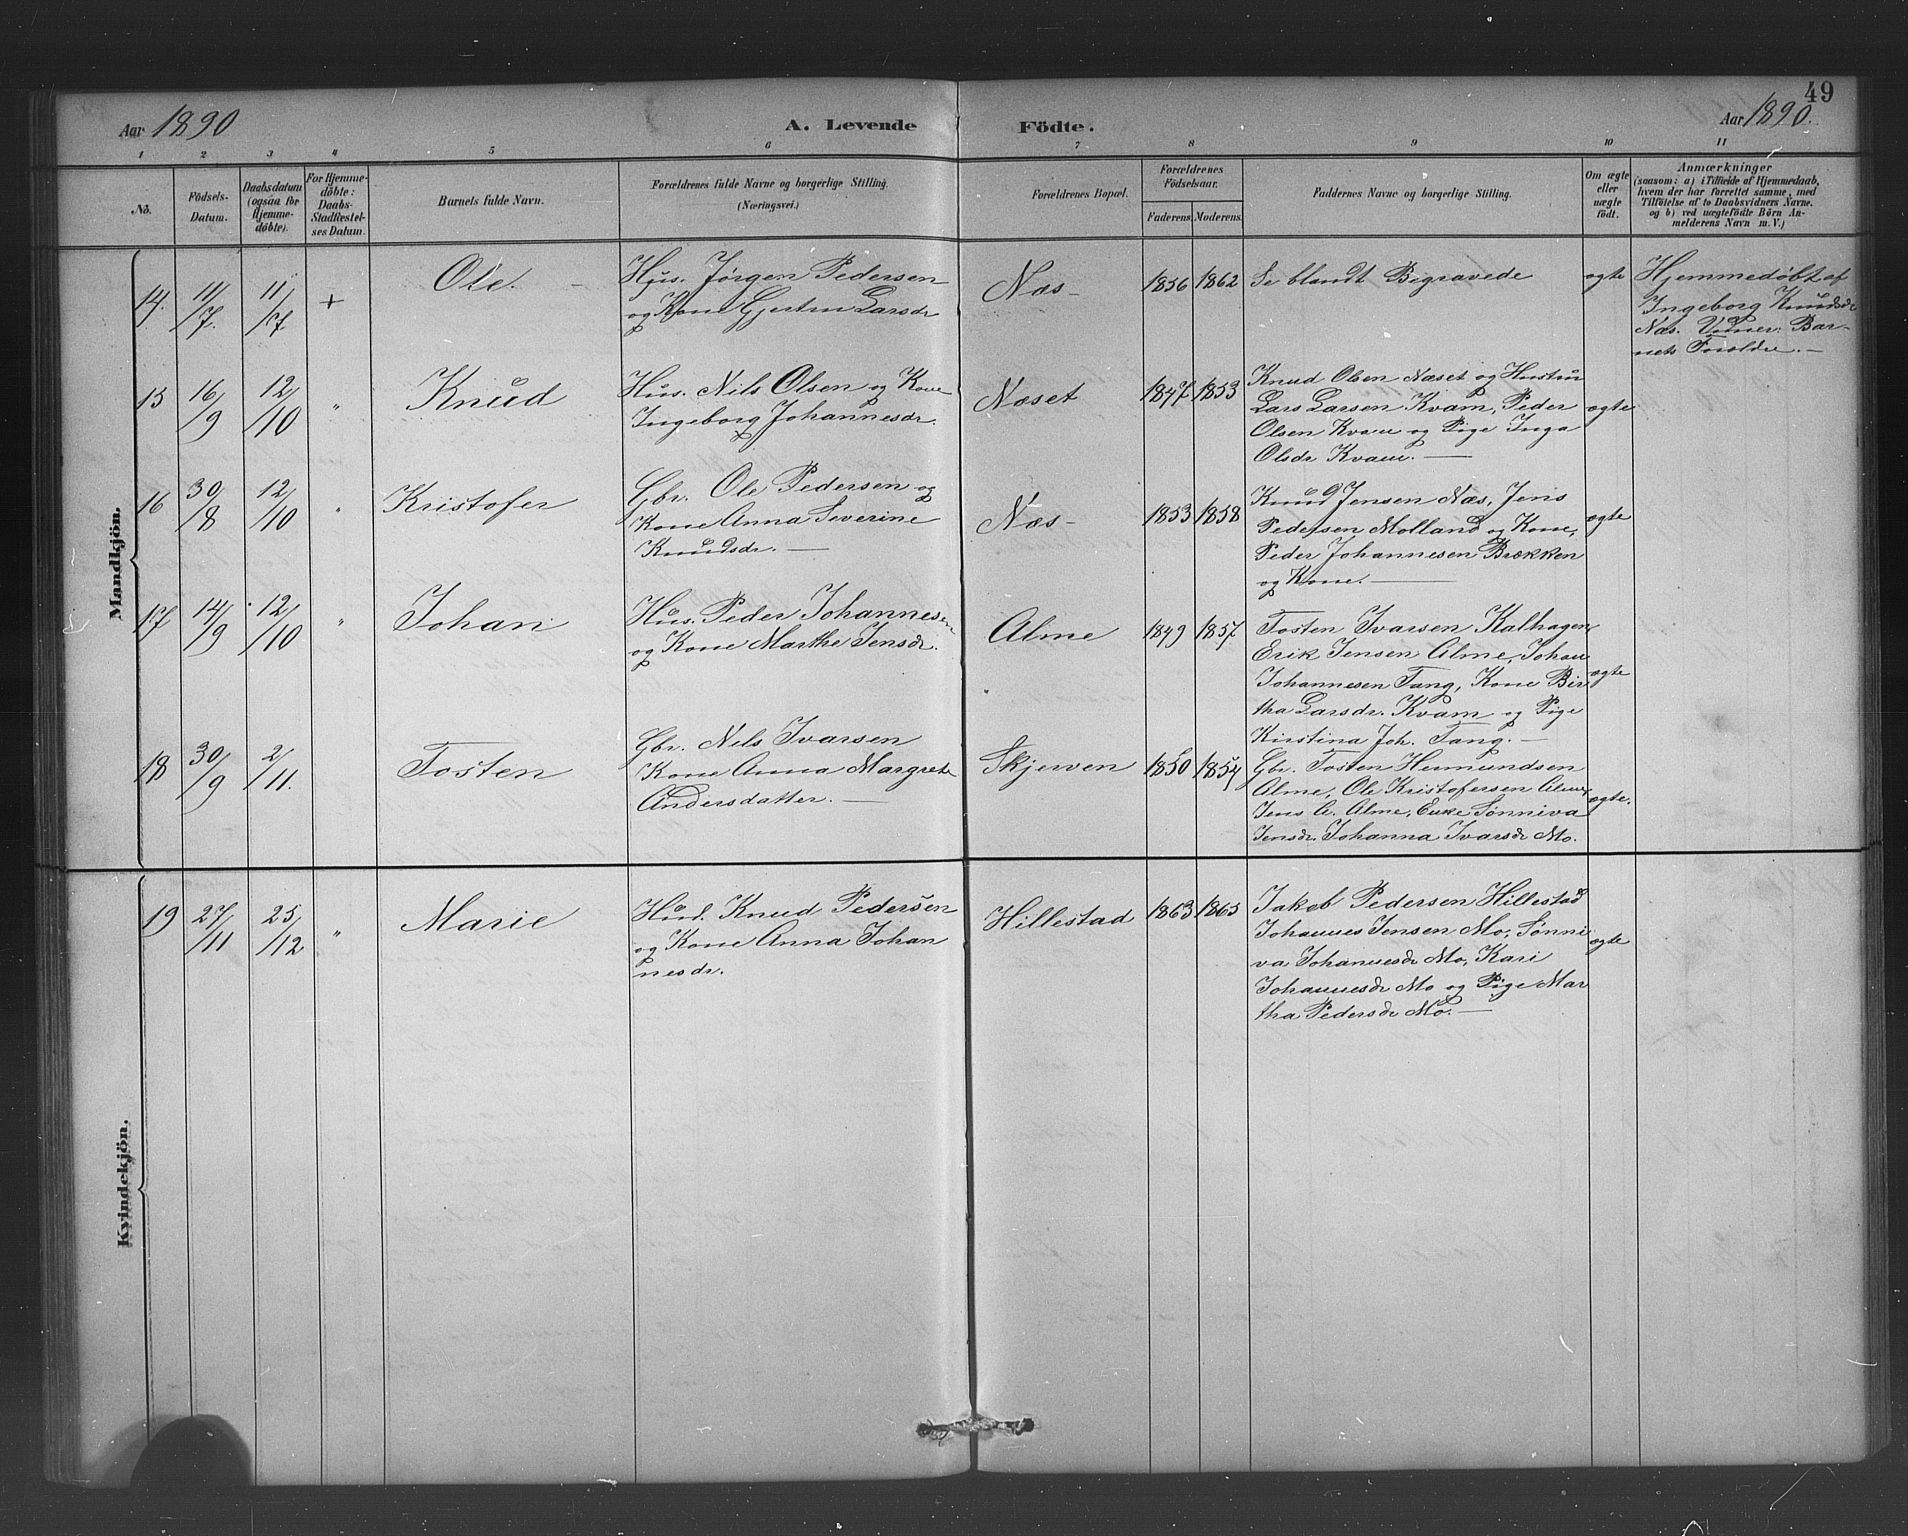 49
Aar 1890
A. Levende
Födte.
Aar 1890.
1 2 3 4 5 6 7 8 9 10 11
No.
Födsels-
Datum.
Daabsdatum
(ogsaa for
Hjemme-
döbte).
For Hjemme-
döbte:
Daabs-
Stadfæstel-
ses Datum.
Barnets fulde Navn.
Forældrenes fulde Navne og borgerlige Stilling.
(Næringsvei.)
Forældrenes Bopæl.
Forældrenes
Födselsaar.
Faderens. Moderens.
Faddernes Navne og borgerlige Stilling.
Om ægte
eller
uægte
födt.
Anmærkninger
(saasom: a) i Tilfælde af Hjemmedaab,
hvem der har forrettet samme, med
Tilföielse af to Daabsvidners Navne.
og b) ved uægtefödte Börn An-
melderens Navn m. V.)
Mandkjön.
14. 11/7 11/7 + Ole.
Hus. Jørgen Pedersen
og Kone Gjertru Larsdr
Næs-
1856 1862
Se blandt Begravede
ægte
Hjemmedøbt af
Ingeborg Knudsdr
Næs. Vidner: Bar-
nets Forældre. —
15 16/9 12/10 " Knud
Hus. Nils Olsen og Kone
Ingeborg Johannesdr.
Næset
1847 1853
Knud Olsen Næset og Hustru
Lars Larsen Kvam, Peder
Olsen Kvam og Pige Inga
Olsdr Kvam. —
ægte
16 30/8 12/10 " Kristofer
Gbr. Ole Pedersen og
Kone Anna Severine
Knudsdr. —
Næs-
1853 1858
Knud Jensen Næs, Jens
Pedersen Molland og Kone,
Peder Johannesen Brækken
og Kone. —
ægte
17 14/9 12/10 " Johan
Hus. Peder Johannesen
og Kone Marthe Jensdr.
Alme
1849 1857
Tosten Ivarsen Kalhagen,
Erik Jensen Alme, Johan
Johannesen Tang, Kone Bir
tha Larsdr. Kvam og Pige
Kirstina Joh. Tang. —
ægte
18 30/9 2/11. Tosten
Gbr. Nels Ivarsen
Kone Anna Margrete
Andersdatter. —
Skjerven
1850 1854
Gbr. Tosten Hermundsen
Alme, Ole Kristofersen Alme,
Jens A. Alme, Enke Sønniva
Jensdr. Johanna Ivarsdr Mo.
ægte.
Kvindekjön.
19 27/11 25/12 " Marie
Hus. Knud Pedersen
og Kone Anna Johan
nesdr.
Hillestad
1863 1865
Jakob Pedersen Hillestad
Johannes Jensen Mo, Sønni
va Johannesdr Mo, Kari
Johannesdr Mo og Pige Mar
tha Pedersdr Mo. —
ægte